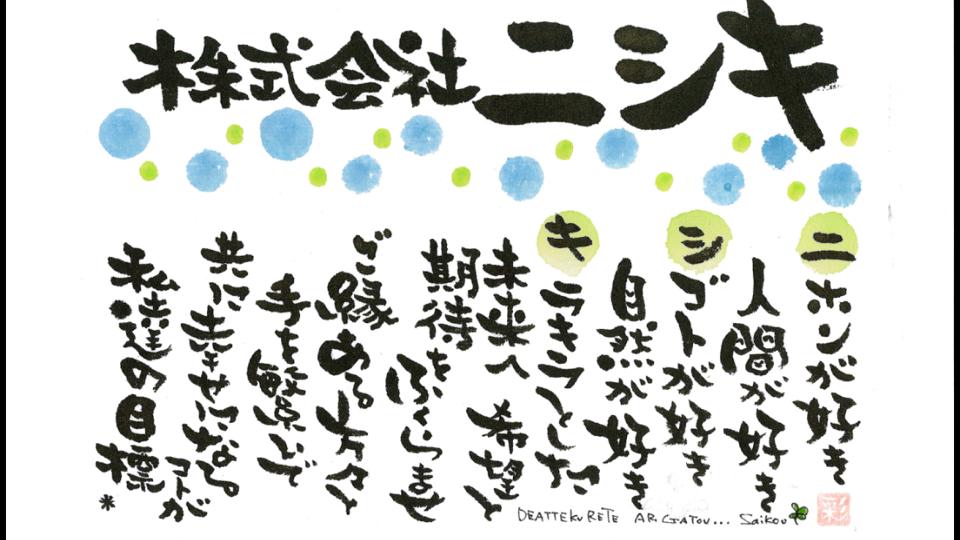 株式会社ニシキ
ニホンが好き
人間が好き
シゴトが好き
自然が好き
キラキラとした
未来へ 希望と
期待をふくらませ
ご縁ある方々と
手を繋いで
共に幸せになる
コトが
私達の目標
*
DEATTEKURETE ARIGATOU... Saikou
彩